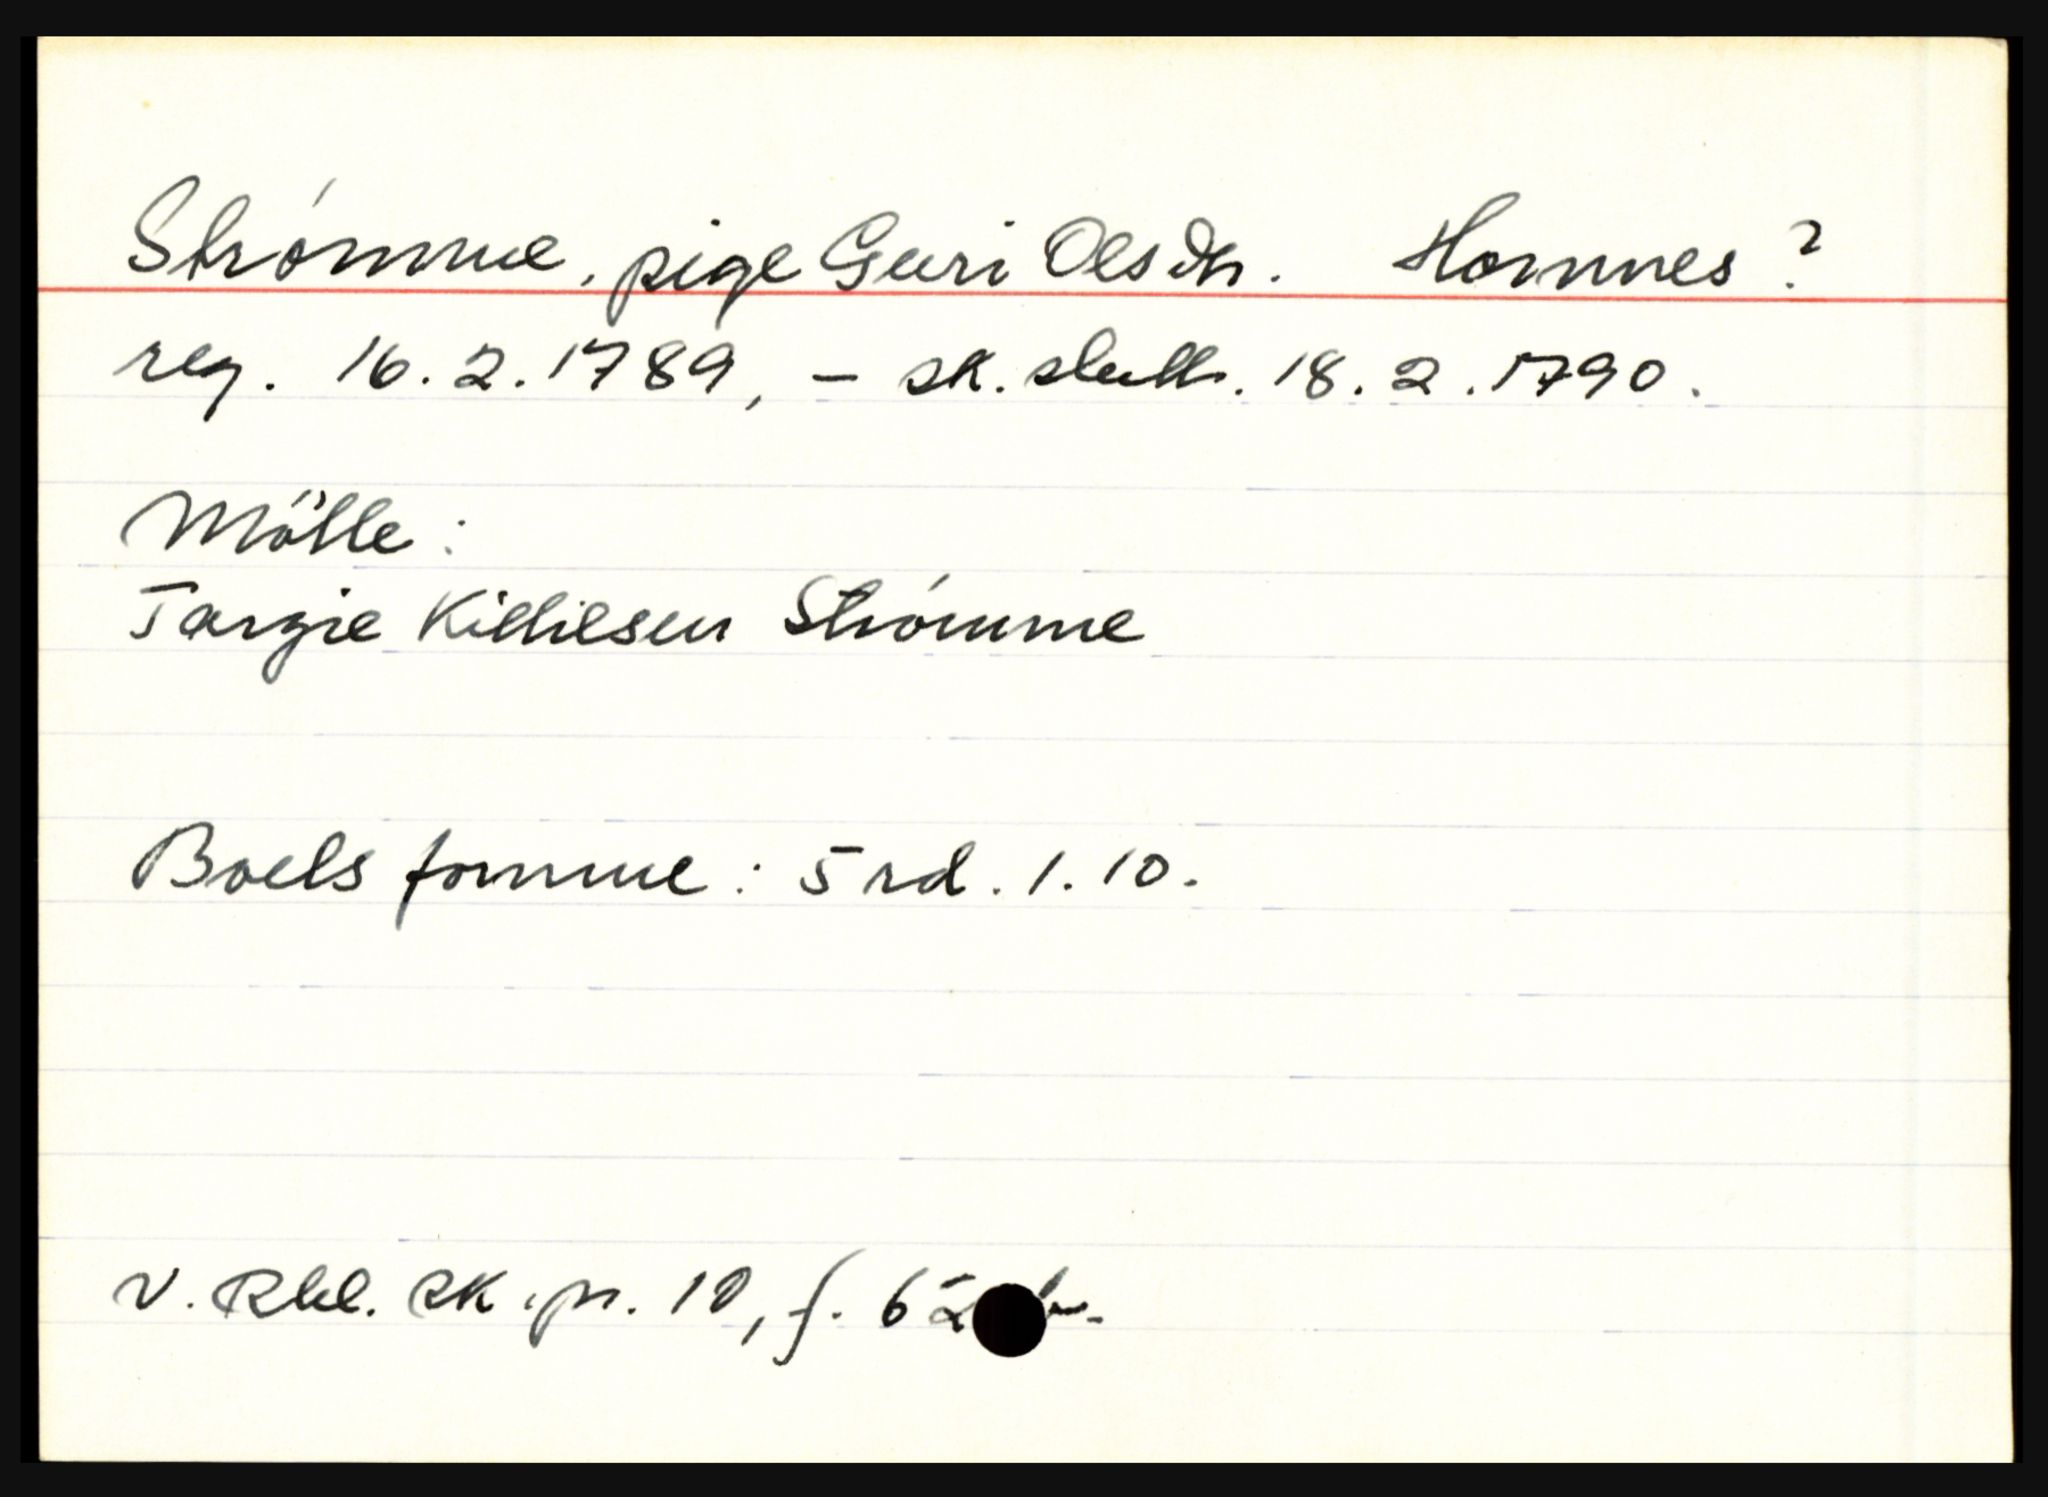 Strømme, pige Guri Olsdtr. Hornnes ?
reg. 16.2.1789, - sk. slutt. 18.2.1790.
Mölle:
Targie Killilsen Strømme
Boets fomue: 5 rd. 1. 10.
v. Rbl. sk. pr. 10, f. 62